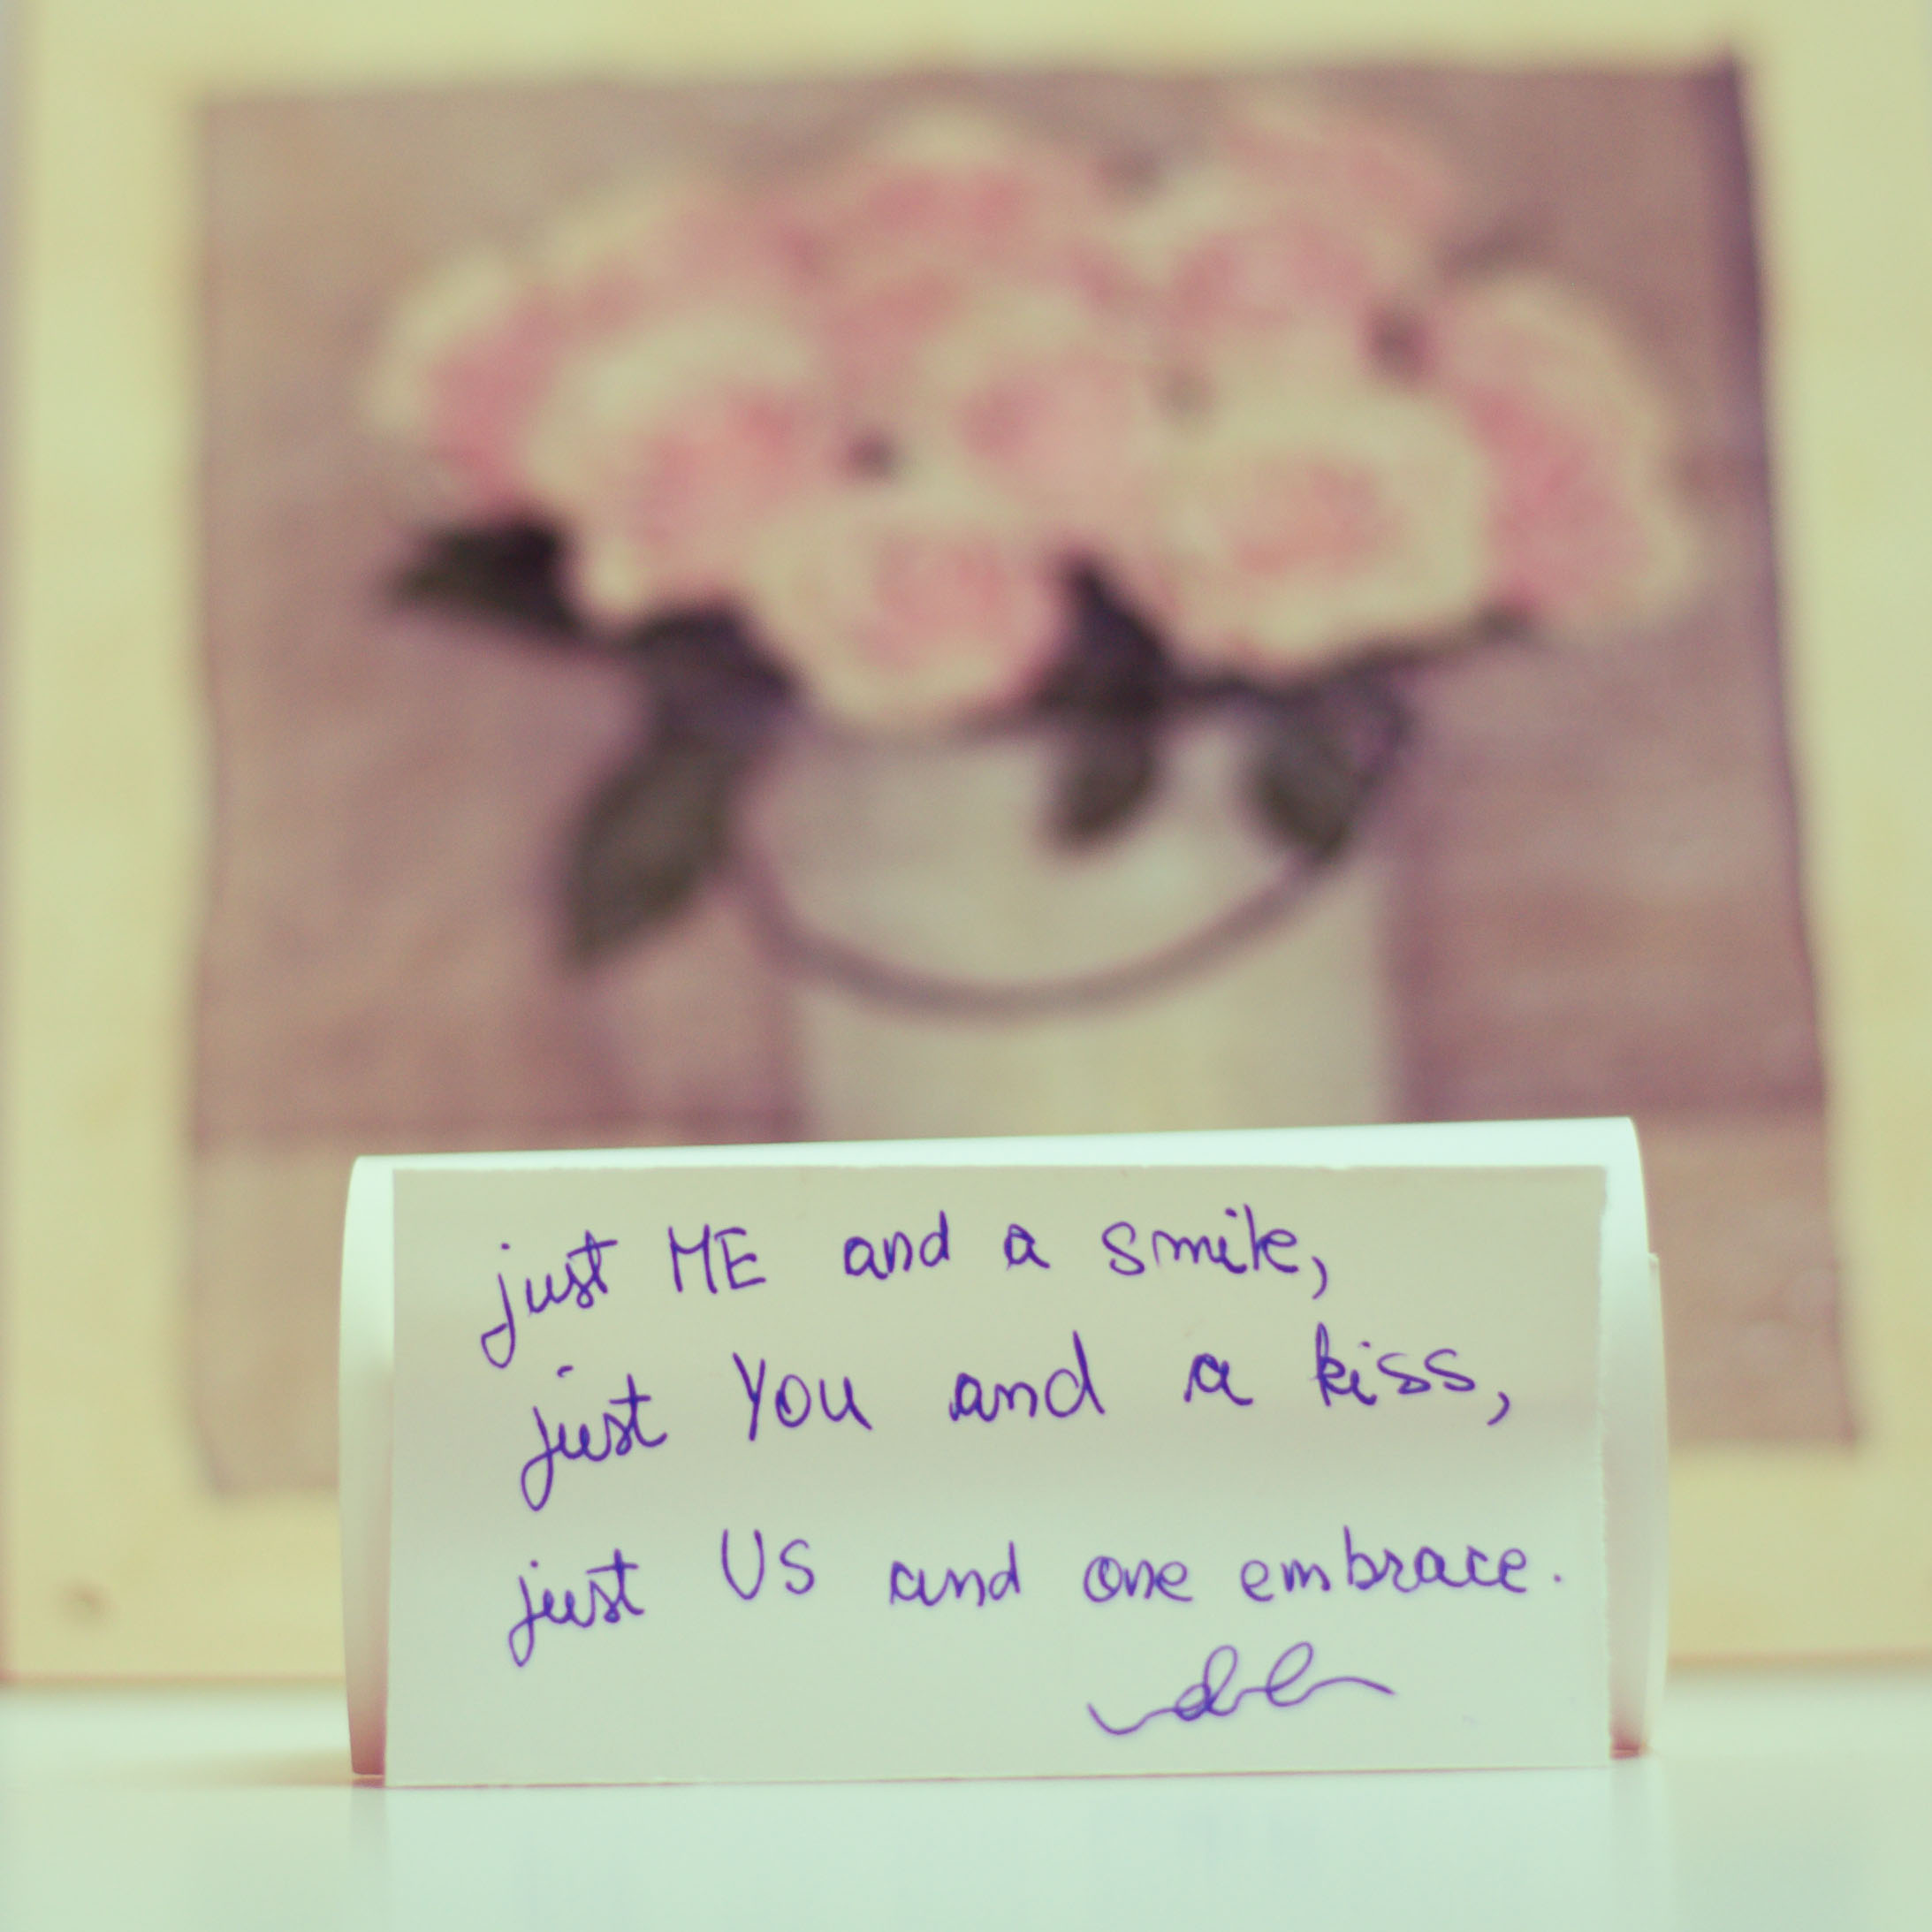 just ME and a smile,
just You and a kiss,
just US and one embrace.